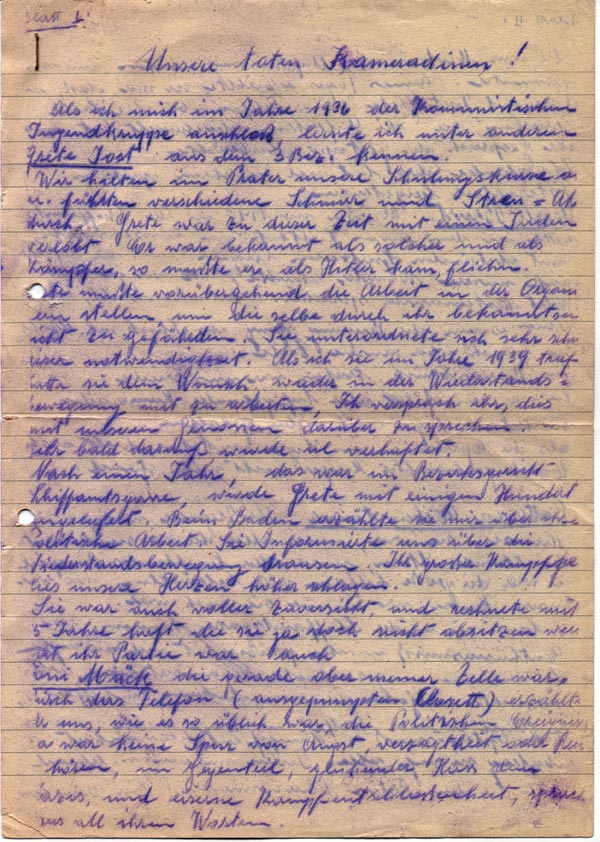 Blatt I.
Unsere toten Kameradinen!
Als ich mich im Jahre 1936 der Kommunistischen
Jugendgruppe anschloss, lernte ich unter anderen
Grete Jost aus dem 3 Bez. kennen.
Wir hilten im Prater unsere Schulungskurse a
u. führten verschiedene Schmier und Streu-Ak
durch. Grete war zu dieser Zeit mit einen Juden
verlobt. Er war bekannt als solcher und als
Kämpfer, so musste er, als Hitler kam, fliehen.
ete musste vorübergehend die Arbeit in der Organi
ein stellen um die selbe durch ihr bekanntsei
nicht zu gefährden. Sie unterordnete sich sehr
dieser notwendigkeit. Als ich sie im Jahre 1939 traf
hatte sie den Wunsch wieder in der Wiederstands-
bewegung mit zu arbeiten, Ich versprach ihr, dies
mit unseren Genossen darüber zu sprechen
sehr bald darauf wurde ich verhaftet.
Nach einen Jahr, das war im Bezirksgericht
Schiffamtsgasse, wurde Grete mit einigen Hundert
eingeliefert. Beim Baden erzählte sie mir über ihre
politische Arbeit. Sie Informierte uns über die
Wiederstandsbewegung drausen. Ihr grosser Kampfge
lies unsere Herzen höher schlagen.
Sie war auch voller Zuversicht, und rechnete mit
5 Jahre haft, die sie ja doch nicht absitzen
ihr Parole war auch
Mück die gerade ober meiner Zelle war.
durch das Telefon (ausgepumpten Closett) erzählte
uns, wie es so üblich war die Politischen Ereignis
a war keine Spur von Angst, verzagtheit oder
hören, im Gegenteil, glühender Hass
azis, und eiserne Kampfentschlossenheit, sprach
aus all ihren Worten.